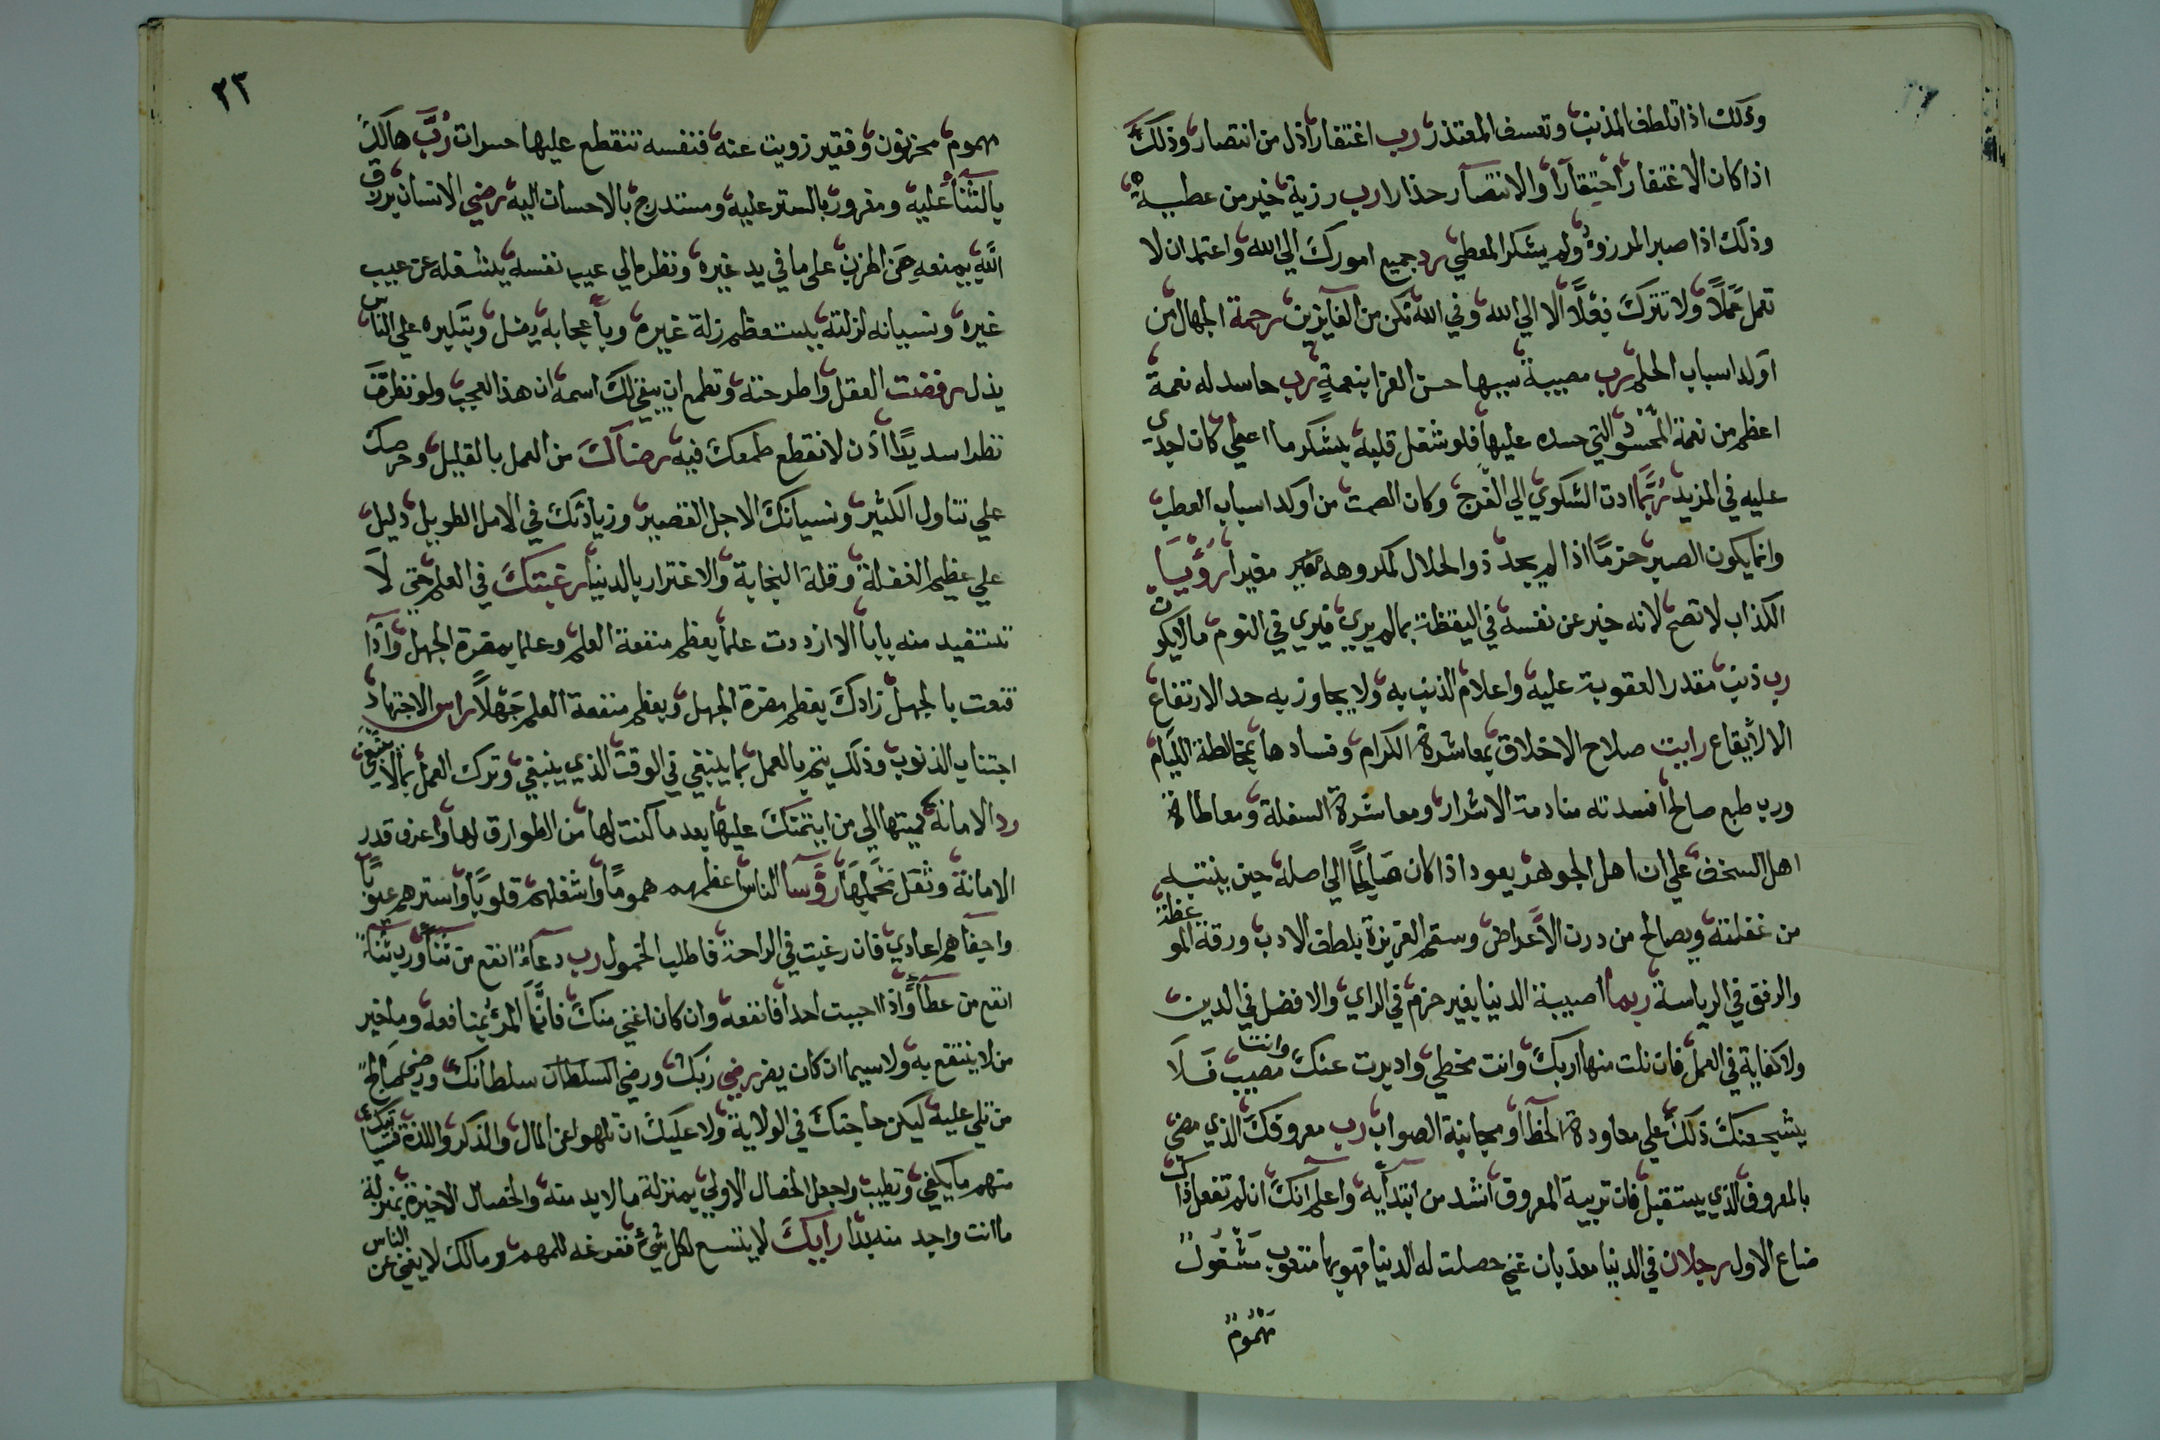 وذلك اذا تلطف المذنب وتعسف المعتذر رب اغتفار اذل من انتصار وذلك
اذا كان الاغتفار احتقارا والانتصار حذارا رب رزية خير من عطية
وذلك اذا صبر المرزو ولم يشكر المعطي رد جميع امورك الي الله واعتمد ان لا
تعمل عملا ولا تترك فعلا الا الي الله وفي الله تكن من الفايزين رحمة الجهال من
اوكد اسباب الحلم رب مصيبة سببها حسن العزا بنعمة رب حاسد له نعمة
اعظم من نعمة المحسود التي حسده عليها فلو شغل قلبه بشكر ما اعطي كان اجدي
عليه في المزيد ربما ادت الشكوي الي الفرج وكان الصمت من اوكد اسباب العطب
وانما يكون الصبر حزما اذا لم يجد ذو الحلال لمكروهه مغير رؤيا
الكذاب لا تصح لانه خبر عن نفسه في اليقظة بما لم يري فيري في النوم ما لا يكون
رب ذنب مقدر العقوبة عليه واعلام الذنب به ولا يجاوز به حد الارتفاع
الا لايقاع رايت صلاح الاخلاق بمعاشرة الكرام وفسادها بمخالطة الليام
ورب طبع صالح افسدته منادمة الاشرار ومعاشرة السفلة ومعاطاة
اهل السخف علي ان اهل الجوهر يعود اذا كان صالحا الي اصله حين ينتبه
من غفلته ويصالح من درن الاعراض وسقم الغريزة بلطف الادب ورقة الموعظة
والرفق في الرياسة ربما اصيبة الدنيا بغير حزم في الراي والافضل في الدين
ولا كفاية في العمل فان نلت منها اربك وانت مخطي وادبرت عنك وانت مصيب فلا
يشجعنك ذلك علي معاودة الخطا ومجانبة الصواب رب معروفك الذي مضي
بالمعروف الذي يستقبل فان تربية المعروف اشد من ابتدآيه واعلم انك ان لم تفعل ذاك
ضاع الاول رجلان في الدنيا معذبان غني حصلت له الدنيا فهو بها متعوب مشغول
مهموم
٢٣
مهموم محزون وفقير زويت عنه فنفسه تتقطع عليها حسرات رب هالك
بالثنآ عليه ومغرور بالستر عليه ومستدرج بالاحسان اليه رضي الانسان برزق
الله يمنعه من الحزن علي ما في يد غيره ونظره الي عيب نفسه يشغله عن عيب
غيره ونسيانه لزلته يستعظم زلة غيره وباعجابه يضل وبتكبره علي الناس
يذل رفضت العقل واطرحته وتطمع ان يبقي لك اسمه ان هذا العجب ولو نظرت
نظرا سديدا اذن لانقطع طمعك فيه رضاك من العمل بالقليل وحرصك
علي تناول الكثير ونسيانك الاجل القصير وزيادتك في الامل الطويل دليل
علي عظيم الغفلة وقلة النجابة والاغترار بالدنيا رغبتك في العلم حتي لا
تستفيد منه بابا الا ازددت علما بعظم منفعة العلم وعلما بمضرة الجهل واذا
قنعت بالجهل زادك بعظم مضرة الجهل وبعظم منفعة العلم جهلا راس الاجتهاد
اجتناب الذنوب وذلك يتم بالعمل بما ينبغي في الوقت الذي ينبغي وترك العمل بما لا ينبغي
رد الامانة كهيتها الي من ايتمنك عليها بعد ما كنت لها من الطوارق لها واعرف قدر
الامانة وثقل تحملها رؤسا الناس اعظمهم هموما واشغلهم قلوبا واسترهم عيوبا
واجفاهم اعادي فان رغبت في الراحة فاطلب الخمول رب دعاء انفع من ثنا ورب ثناء
انفع من عطاء واذا احببت احدا فانفعه وان كان اغني منك فانما المرء بمنافعه وما خير
من لا ينتفع به ولا سيما ان كان يضر رضي ربك ورضي السلطان سلطانك ورضي صالح
من تلي عليه ليكن حاجتك في الولاية ولا عليك ان تلهوا عن المال والذكر واللذة فسياتيك
منهم ما يكفي وتطيب واجعل الخصال الاولي بمنزلة ما لا بد منه والخصال الاخيرة بمنزلة
ما انت واجد منه بدا رايك لا يتسع لكل شئ ففرغه للمهم ومالك لا يغني عن الناس